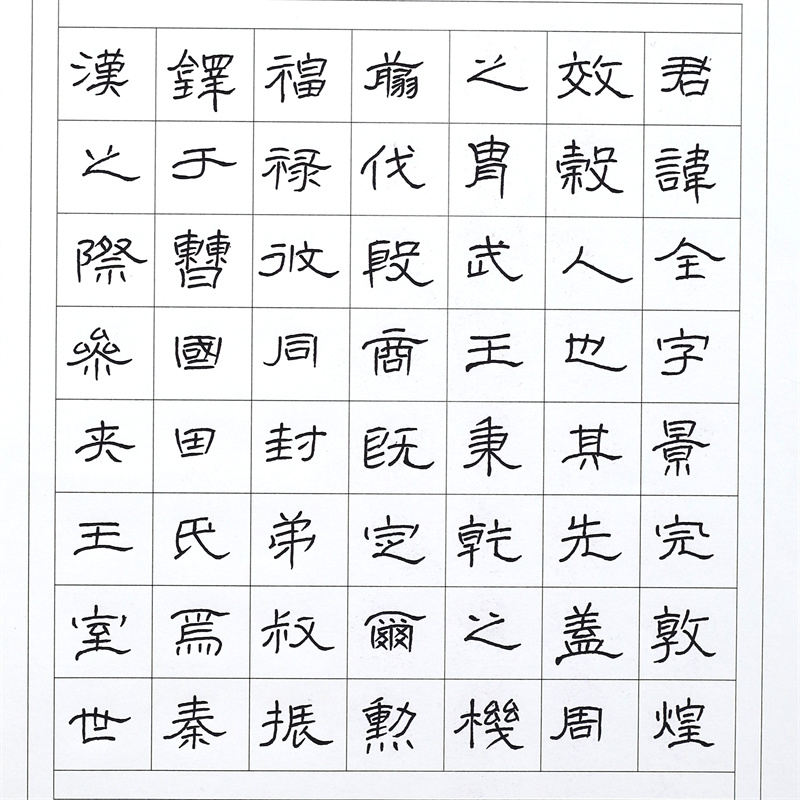 君諱全字景完敦煌
效穀人也其先盖周
之胄武王秉乾之機
翦伐殷商既定爾勲
福禄攸同封弟叔振
鐸于曹國因氏焉秦
漢之際參夹王室世